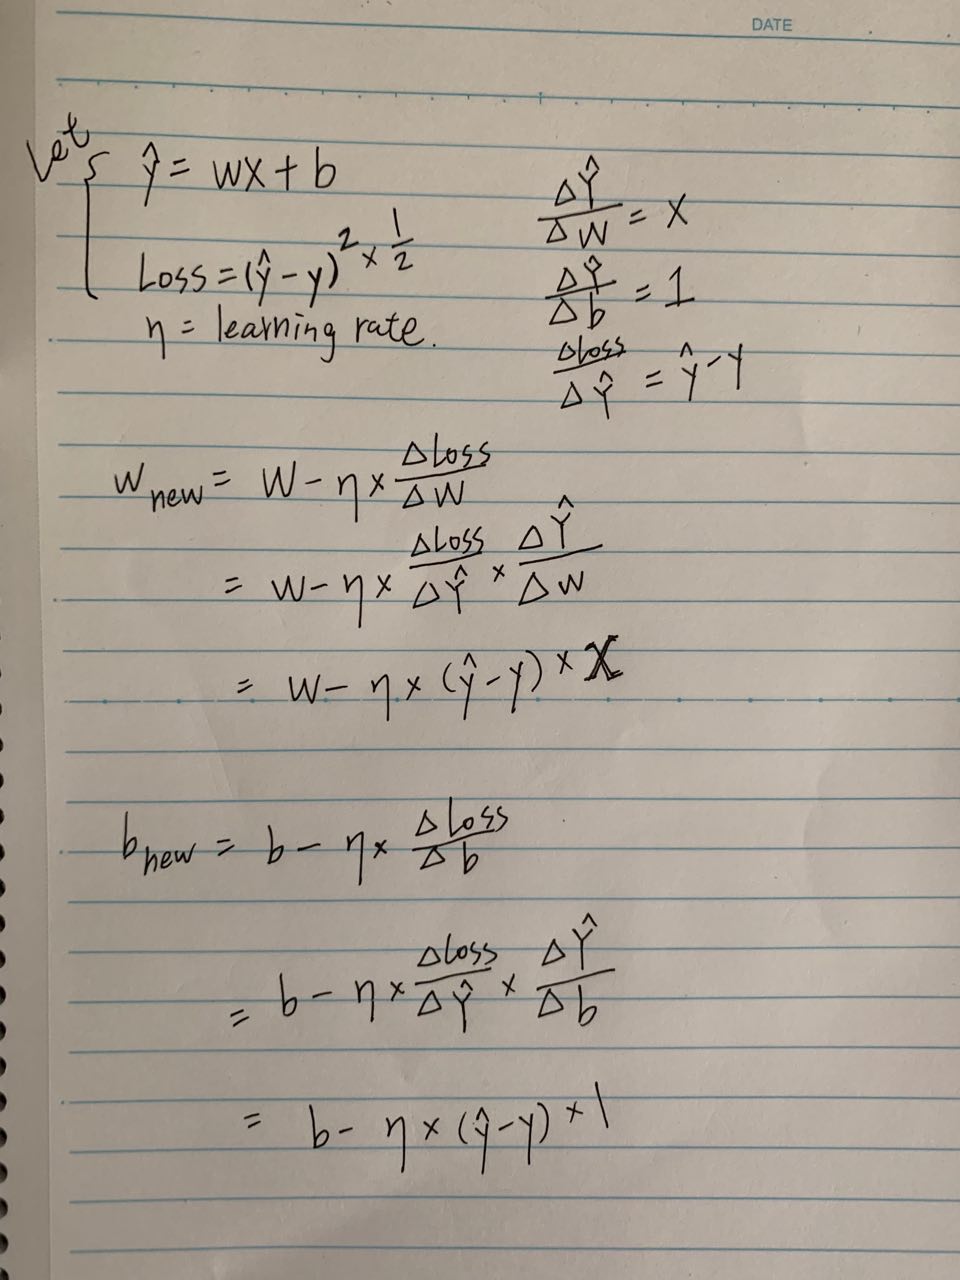 DATE
Let
ŷ = wx + b
Loss = (ŷ - y)² × 1/2
η = learning rate.
ΔŶ/ΔW = X
ΔŶ/Δb = 1
ΔLoss/ΔŶ = ŷ - y
w new = W - η × ΔLoss/ΔW
= W - η × ΔLoss/ΔŶ × ΔŶ/ΔW
= W - η × (ŷ - y) × X
b new = b - η × ΔLoss/Δb
= b - η × ΔLoss/ΔŶ × ΔŶ/Δb
= b - η × (ŷ - y) × 1